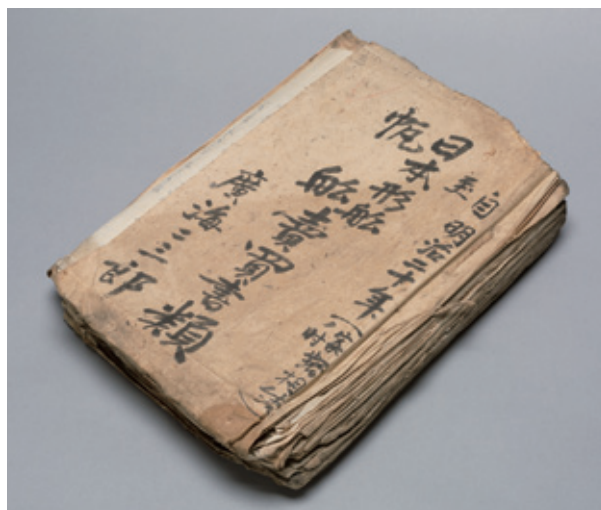 自 明治二十年
至
日本形舩
帆舩賣買書類
廣海二三郎